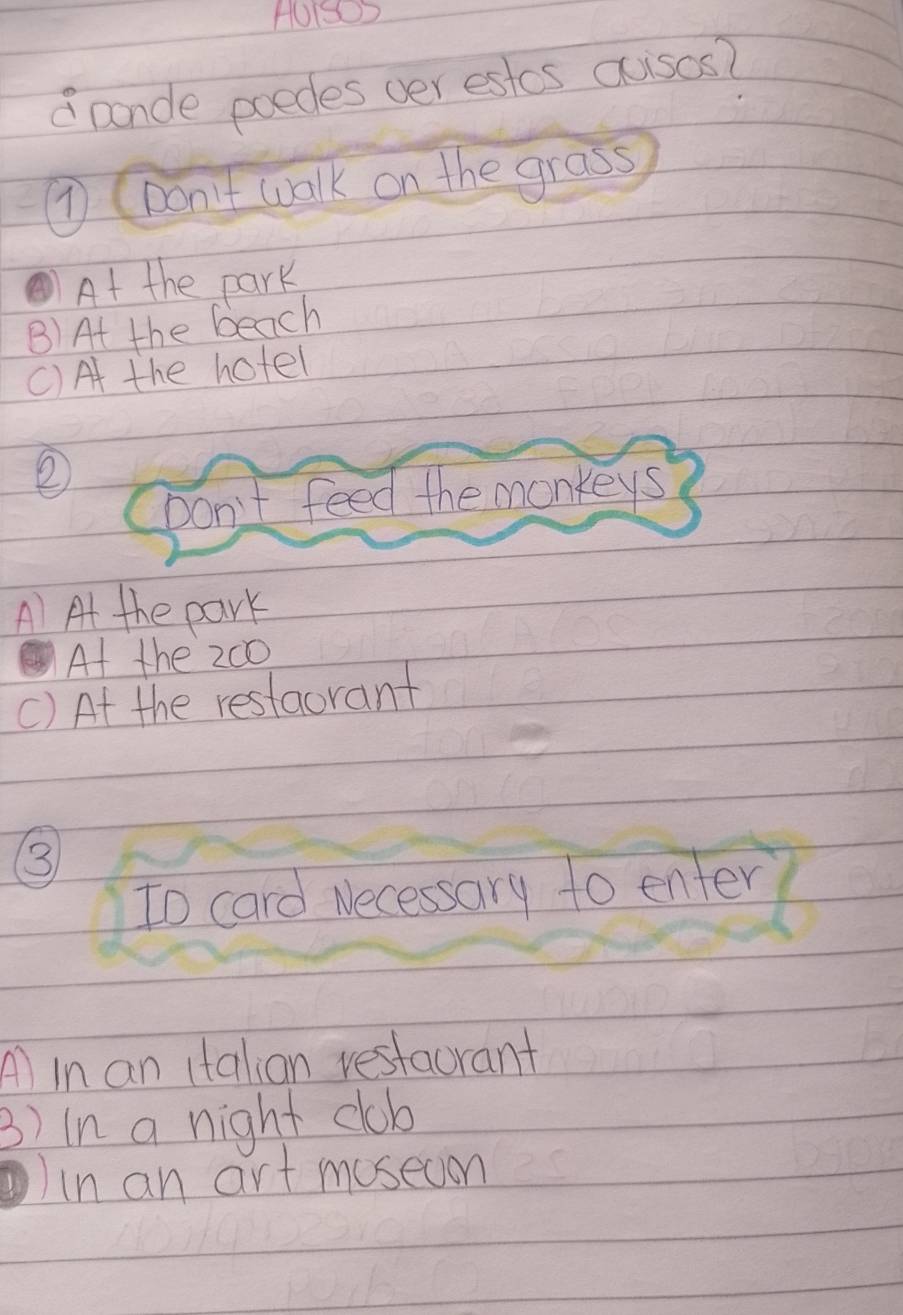 AVISOS
¿Donde puedes ver estos avisos?
① Don't walk on the grass
A) At the park
B) At the beach
C) At the hotel
② Don't feed the monkeys
A) At the park
B) At the zoo
C) At the restaurant
③ ID card Necessary to enter
A) In an italian restaurant
B) In a night club
C) in an art museum